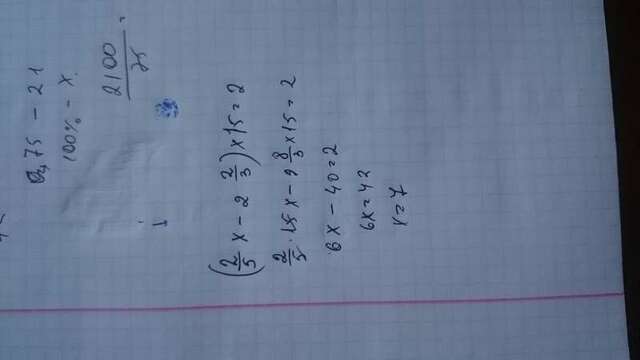 0,75 - 21
100% - x.
2100/75 =
(2/5 x - 2 2/3) × 15 = 2
2/5 · 15 x - 8/3 × 15 = 2
6x - 40 = 2
6x = 42
x = 7